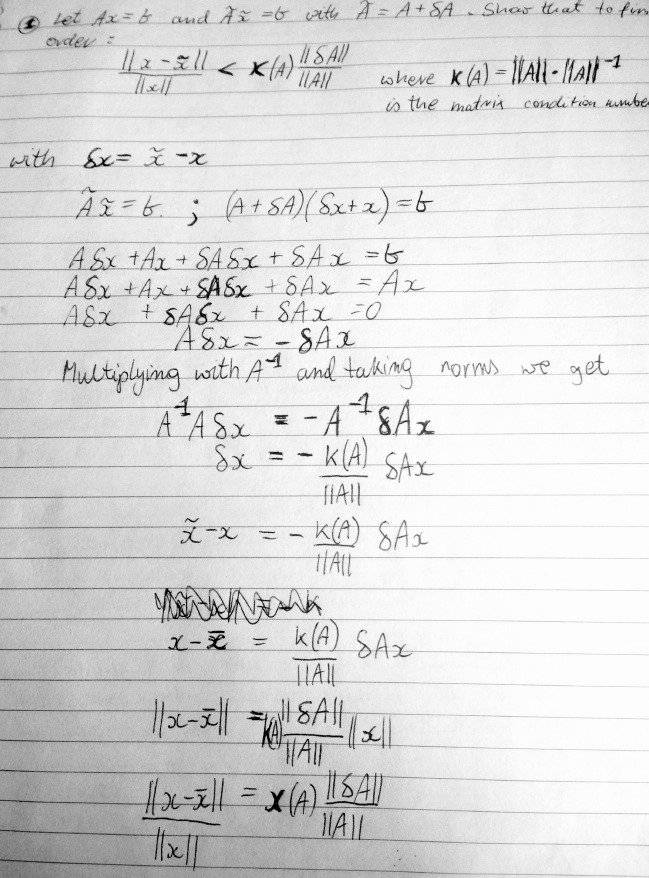 ① Let Ax = b and Ãx̃ = b with Ã = A + δA. Show that to
order:
||x - x̃|| / ||x|| < K(A) ||δA|| / ||A|| where K(A) = ||A|| · ||A||⁻¹
is the matrix condition number
with δx = x̃ - x
Ãx̃ = b. ; (A + δA)(δx + x) = b
Aδx + Ax + δAδx + δAx = b
Aδx + Ax + δAδx + δAx = Ax
Aδx + δAδx + δAx = 0
Aδx = - δAx
Multiplying with A⁻¹ and taking norms we get
A⁻¹Aδx = - A⁻¹δAx
δx = - K(A) / ||A|| δAx
x̃ - x = - K(A) / ||A|| δAx
x - x̄ = K(A) / ||A|| δAx
||x - x̄|| = K(A) ||δA|| / ||A|| ||x||
||x - x̄|| / ||x|| = K(A) ||δA|| / ||A||